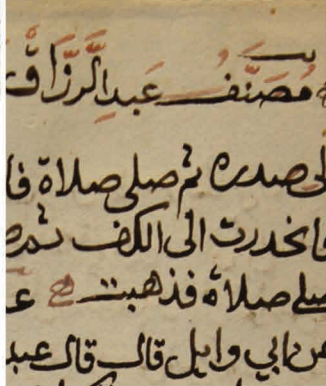 مُصَنَّفُ عَبدِالَّرزَّاقْ
صدره ثم صلى صلاة فا
فانحدرت الى الكف ثم
صلى صلاة فذهبت
عن ابي وايل قال قال عبد